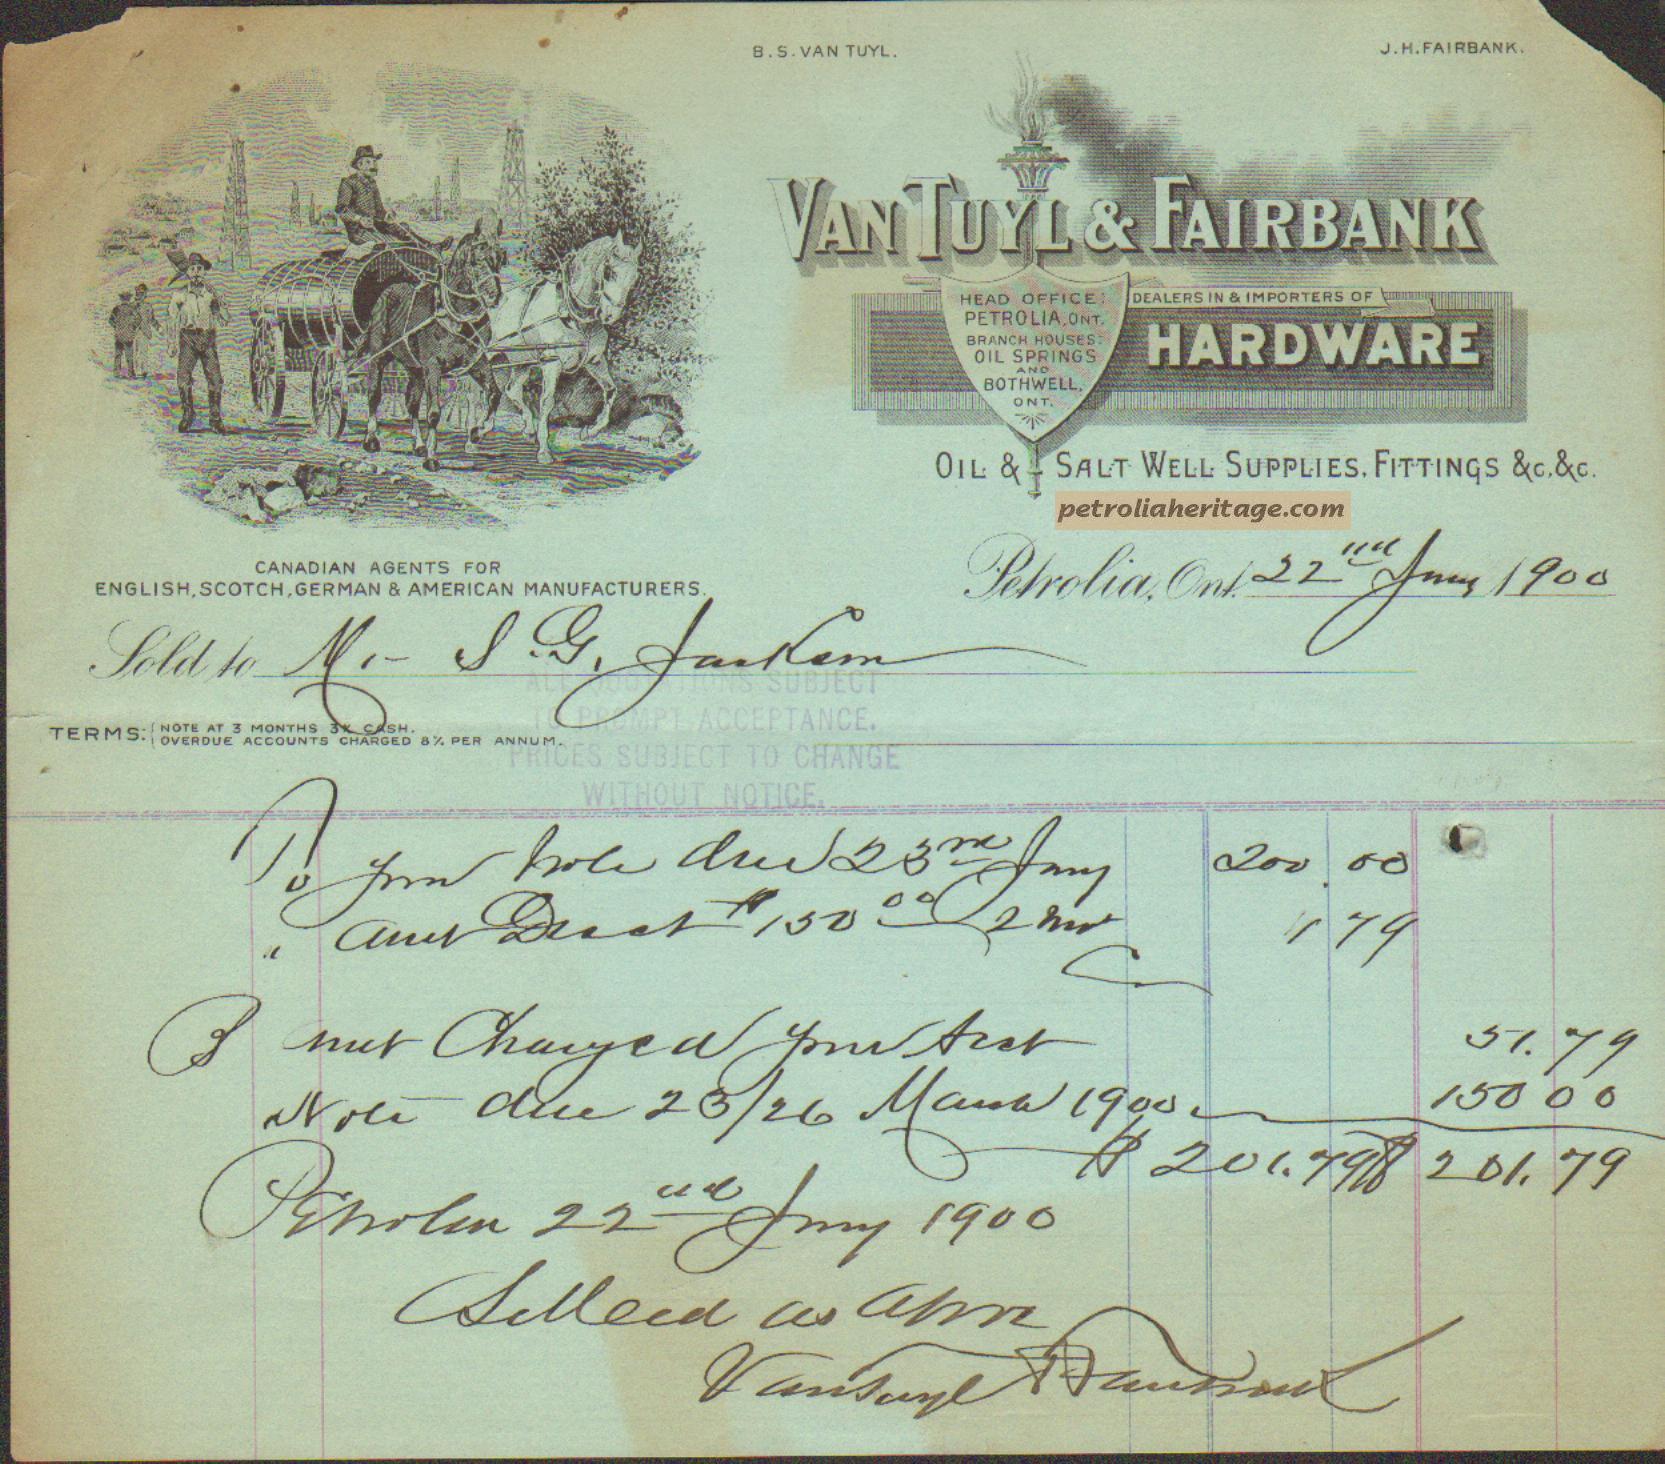 B. S. VAN TUYL.
J. H. FAIRBANK.
VAN TUYL & FAIRBANK
HEAD OFFICE:
PETROLIA, ONT.
BRANCH HOUSES:
OIL SPRINGS
AND
BOTHWELL,
ONT.
DEALERS IN & IMPORTERS OF
HARDWARE
OIL & SALT WELL SUPPLIES, FITTINGS &c, &c.
petroliaheritage.com
CANADIAN AGENTS FOR
ENGLISH, SCOTCH, GERMAN & AMERICAN MANUFACTURERS.
Petrolia, Ont. 22nd Jany 1900
Sold to Mr S. G. Jackson
ALL QUOTATIONS SUBJECT
TO PROMPT ACCEPTANCE.
PRICES SUBJECT TO CHANGE
WITHOUT NOTICE.
TERMS: NOTE AT 3 MONTHS 3% CASH.
OVERDUE ACCOUNTS CHARGED 8% PER ANNUM.
To your Note due 23rd Jany 200.00
" Amt Disct $150 00 2 Mos 1 79
By Amt Charged your Acct 51.79
Note due 23/26 March 1900 150 00
$ 201.79 $ 201.79
Petrolia 22nd Jany 1900
Settled as above
VanTuyl & Fairbank